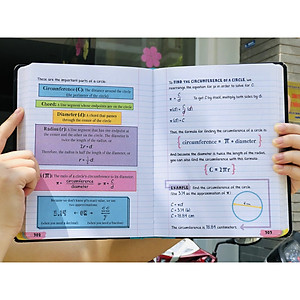 These are the important parts of a circle:
Circumference (C): The distance around the circle
(the perimeter of the circle)
Chord: a line segment whose endpoints are on the circle
Diameter (d): a chord that passes
through the center of the circle
Radius (r): a line segment that has one endpoint at
the center and the other on the circle. The diameter is
twice the length of the radius, so
2r = d
Therefore, the radius is half the length of the diameter, or
r = d/2
Pi (π): The ratio of a circle's circumference to its diameter:
π = circumference/diameter or π = C/d
two approximations:
3.14 OR 22/7
(when you need a decimal) (when you need a fraction)
302
TO FIND THE CIRCUMFERENCE OF A CIRCLE, we
rearrange the equation for pi in order to solve for C.
π = C/d To get C by itself, multiply both sides by d.
π(d) = C/d (d)
π(d) = C
Thus, the formula for finding the circumference of a circle is:
circumference = π • diameter
And because the diameter is twice the length of the radius,
you can also find the circumference with this formula:
C = 2πr
EXAMPLE: Find the circumference of the circle.
Use 3.14 as the approximation of π.
C = πd
C = 3.14 (6)
C = 18.84 cm
The circumference is 18.84 centimeters.
303